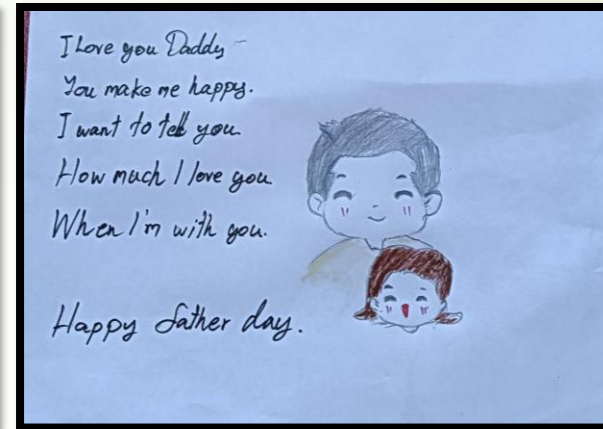 I Love you Daddy -
You make me happy.
I want to tell you
How much I love you.
When I'm with you.
Happy father day.